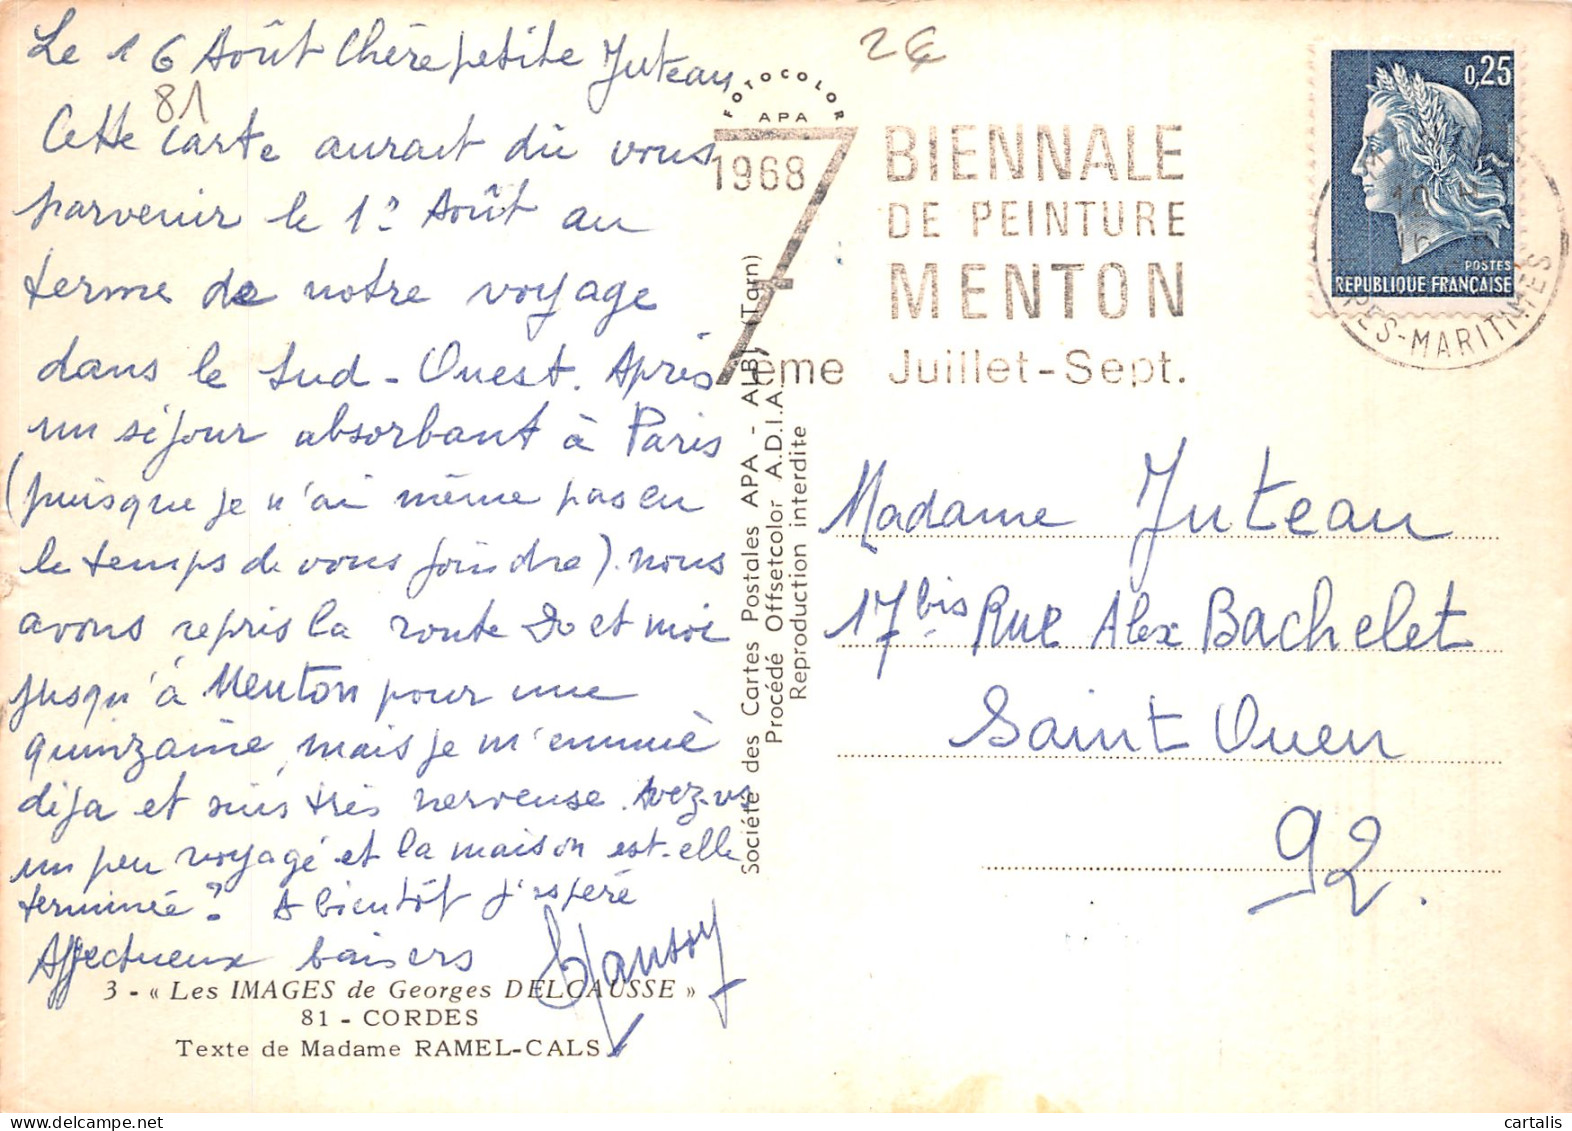 Le 16 Août Chère petite Juteau
81
Cette carte aurait dû vous
parvenir le 1er Août au
terme de notre voyage
dans le Sud-Ouest. Après
un séjour absorbant à Paris
(puisque je n'ai même pas eu
le temps de vous joindre). nous
avons repris la route Do et moi
jusqu'à Menton pour une
quinzaine, mais je m'ennuie
déja et suis très nerveuse. Avez-vs
un peu voyagé et la maison est-elle
terminée? A bientôt j'espère
Affectueux baisers
3 - « Les IMAGES de Georges DELCAUSSE »
81 - CORDES
Texte de Madame RAMEL-CALS
FOTOCOLOR
APA
Société des Cartes Postales APA - ALBI (Tarn)
Procédé Offsetcolor A.D.I.A.
Reproduction interdite
2€
1968
BIENNALE
DE PEINTURE
MENTON
7ème Juillet-Sept.
0,25
POSTES
REPUBLIQUE FRANÇAISE
PES-MARITIMES
Madame Juteau
17 bis Rue Alex Bachelet
Saint Ouen
92.
cartalis